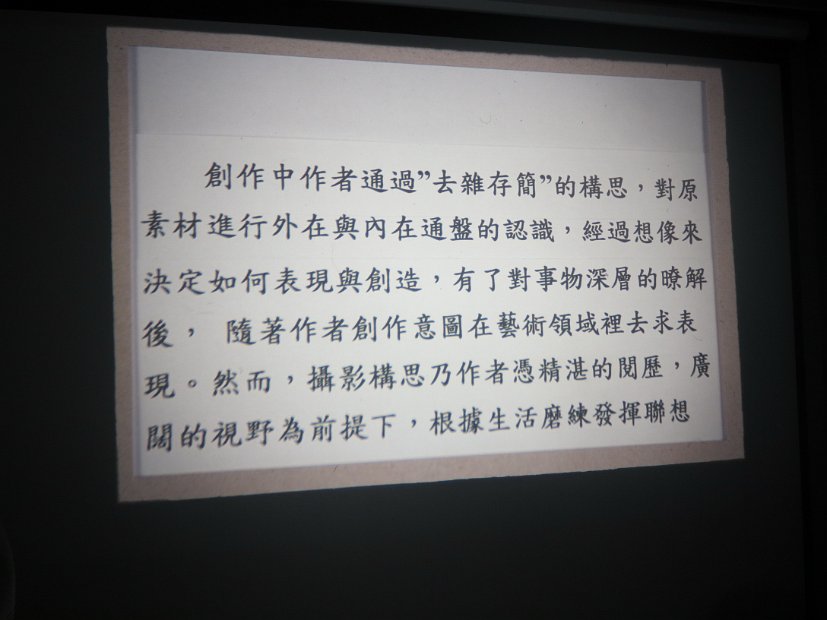 創作中作者通過”去雜存簡”的構思，對原
素材進行外在與內在通盤的認識，經過想像來
決定如何表現與創造，有了對事物深層的瞭解
後， 隨著作者創作意圖在藝術領域裡去求表
現。然而，攝影構思乃作者憑精湛的閱歷，廣
闊的視野為前提下，根據生活磨練發揮聯想